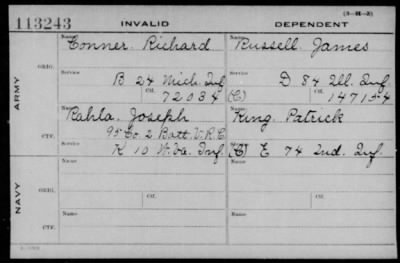 113243 INVALID DEPENDENT (3—H—3)
Name Conner Richard Name Russell James
ARMY ORIG. Service B 24 Mich. Inf Service D 84 Ill. Inf.
Ctf. 72034 (C) Ctf. 147154
Name Rahla. Joseph Name King. Patrick
95 Co 2 Batt. V.R.C.
CTF. Service K 10 W.Va. Inf Service (C) E 74 Ind. Inf.
Name Name
NAVY ORIG. Service Ctf. Service Ctf.
Name Name
CTF. Service Service